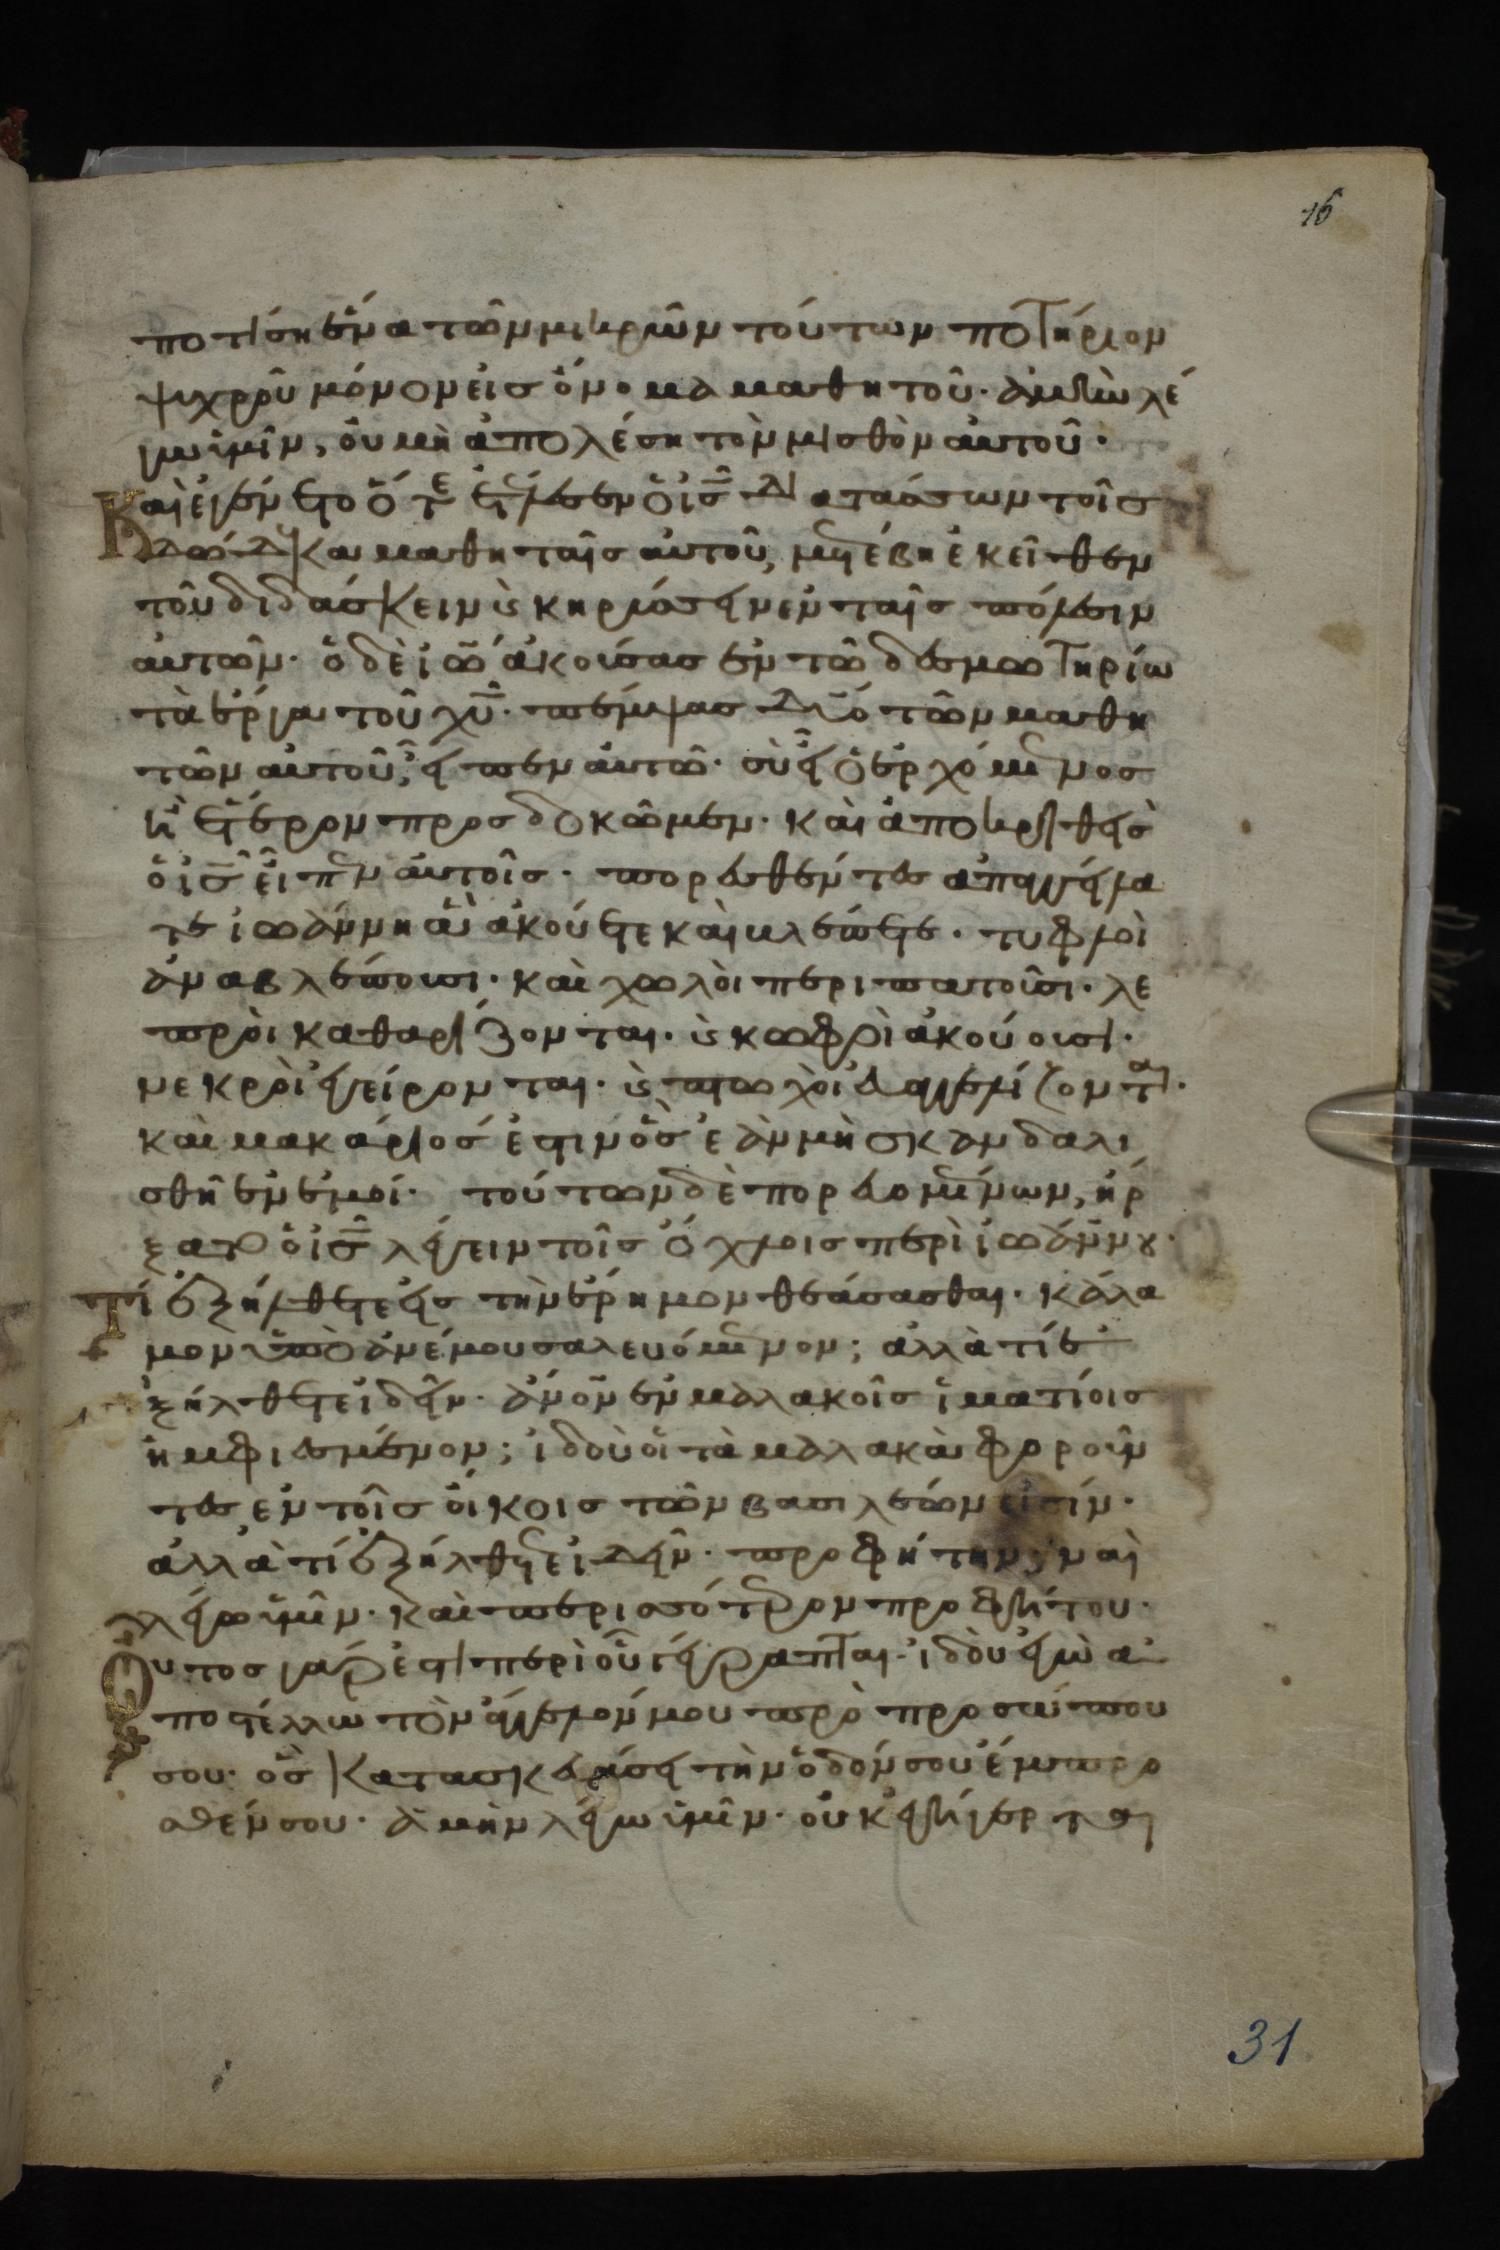 16
ποτίση ἕνα τῶν μικρῶν τούτων ποτήριον
ψυχροῦ μόνον εἰς ὄνομα μαθητοῦ· ἀμὴν λέ
γω ὑμῖν, οὐ μὴ ἀπολέση τὸν μισθὸν αὐτοῦ·
Καὶ ἐγένετο ὅτε ἐτέλεσεν ὁ ις διατάσσων τοῖς
δώδεκα μαθηταῖς αὐτοῦ, μετέβη ἐκεῖθεν
τοῦ διδάσκειν καὶ κηρύσσειν ἐν ταῖς πόλεσιν
αὐτῶν· ὁ δὲ ιω ἀκούσας ἐν τῶ δεσμωτηρίω
τὰ ἔργα τοῦ χυ· πέμψας δύο τῶν μαθη
τῶν αὐτοῦ, εἶπεν αὐτῶ· σὺ εἶ ὁ ἐρχόμενος
ἢ ἕτερον προσδοκῶμεν· καὶ ἀποκριθεὶς
ὁ ις εἶπεν αὐτοῖς· πορευθέντες ἀπαγγείλα
τε ἰωάννη ἃ ἀκούετε καὶ βλέπετε· τυφλοὶ
ἀναβλέπουσι· καὶ χωλοὶ περιπατοῦσι· λε
προὶ καθαρίζονται· καὶ κωφοὶ ἀκούουσι·
νεκροὶ ἐγείρονται· καὶ πτωχοὶ εὐαγγελίζονται·
καὶ μακάριός ἐστιν ὃς ἐὰν μὴ σκανδαλι
σθῆ ἐν ἐμοί· τούτων δὲ πορευομένων, ἤρ
ξατο ὁ ις λέγειν τοῖς ὄχλοις περὶ ἰωάννου·
Τί ἐξήλθετε εἰς τὴν ἔρημον θεάσασθαι· κάλα
μον ὑπὸ ἀνέμου σαλευόμενον; ἀλλὰ τί ἐ
ξήλθετε ἰδεῖν· ἄνον ἐν μαλακοῖς ἱματίοις
ἠμφιεσμένον; ἰδοὺ οἱ τὰ μαλακὰ φοροῦν
τες ἐν τοῖς οἴκοις τῶν βασιλέων εἰσίν·
ἀλλὰ τί ἐξήλθετε ἰδεῖν· προφήτην; ναὶ
λέγω ὑμῖν· καὶ περισσότερον προφήτου·
Οὗτος γάρ ἐστι περὶ οὗ γέγραπται· ἰδοὺ ἐγὼ ἀ
ποστέλλω τὸν ἄγγελόν μου πρὸ προσώπου
σου· ὃς κατασκευάσει τὴν ὁδόν σου ἔμπρο
σθέν σου· ἀμὴν λέγω ὑμῖν· οὐκ ἐγήγερται
31